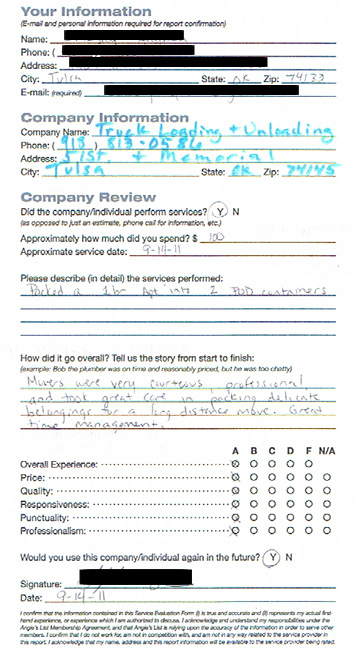 Your Information
(E-mail and personal information required for report confirmation)
Name:
Phone: (
Address:
City: Tulsa State: OK Zip: 74133
E-mail: (required)
Company Information
Company Name: Truck Loading + Unloading
Phone: (918) 813-0586
Address: 51st + Memorial
City: Tulsa State: OK Zip: 74145
Company Review
Did the company/individual perform services? Y N
(as opposed to just an estimate, phone call for information, etc.)
Approximately how much did you spend? $ 100
Approximate service date: 9-14-11
Please describe (in detail) the services performed:
Packed a 1br Apt into 2 POD containers
How did it go overall? Tell us the story from start to finish:
(example: Bob the plumber was on time and reasonably priced, but he was too chatty)
Movers were very courteous, professional
and took great care in packing delicate
belongings for a long distance move. Great
time management.
A B C D F N/A
Overall Experience:
Price:
Quality:
Responsiveness:
Punctuality:
Professionalism:
Would you use this company/individual again in the future? Y N
Signature:
Date: 9-14-11
I confirm that the information contained in this Service Evaluation Form (i) is true and accurate and (ii) represents my actual first-
hand experience, or experience which I am authorized to discuss. I acknowledge and understand my responsibilities under the
Angie's List Membership Agreement, and that Angie's List is relying upon the accuracy of the information in order to serve other
members. I confirm that I do not work for, am not in competition with, and am not in any way related to the service provider in
this report. I acknowledge that my name, address and this report information will be available to the service provider being rated.